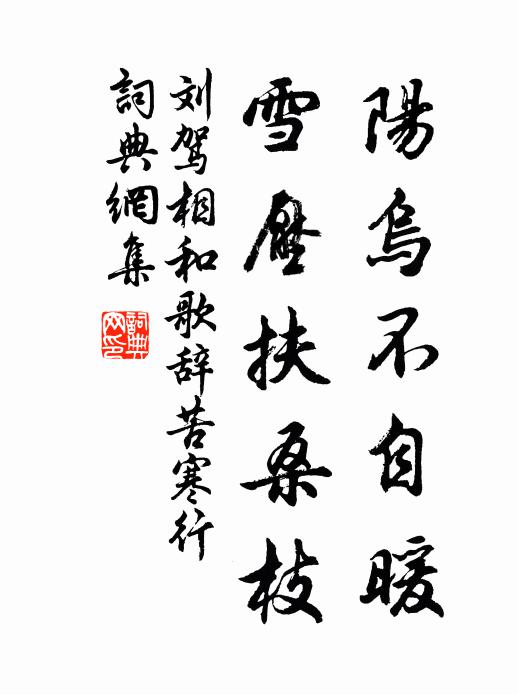 陽烏不自暖
雪壓扶桑枝
刘驾相和歌辞苦寒行
詞典網集
詞典网印